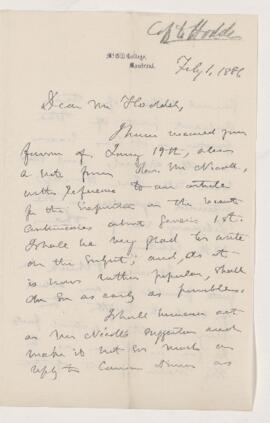 Copy to Hodder
McGill College,
Montreal.
Feby 1, 1886
Dear Mr Hodder,
I have received your
favour of Jany 19th, also
a note from Rev. Mr Nicoll,
with reference to an article
for the Expositor on the recent
controversies about Genesis 1st.
I shall be very glad to write
on the subject; and, as it
is now rather popular, shall
do so as early as possible.
I shall however act
on Mr Nicoll's suggestion and
make it not so much a
reply to Canon Driver as